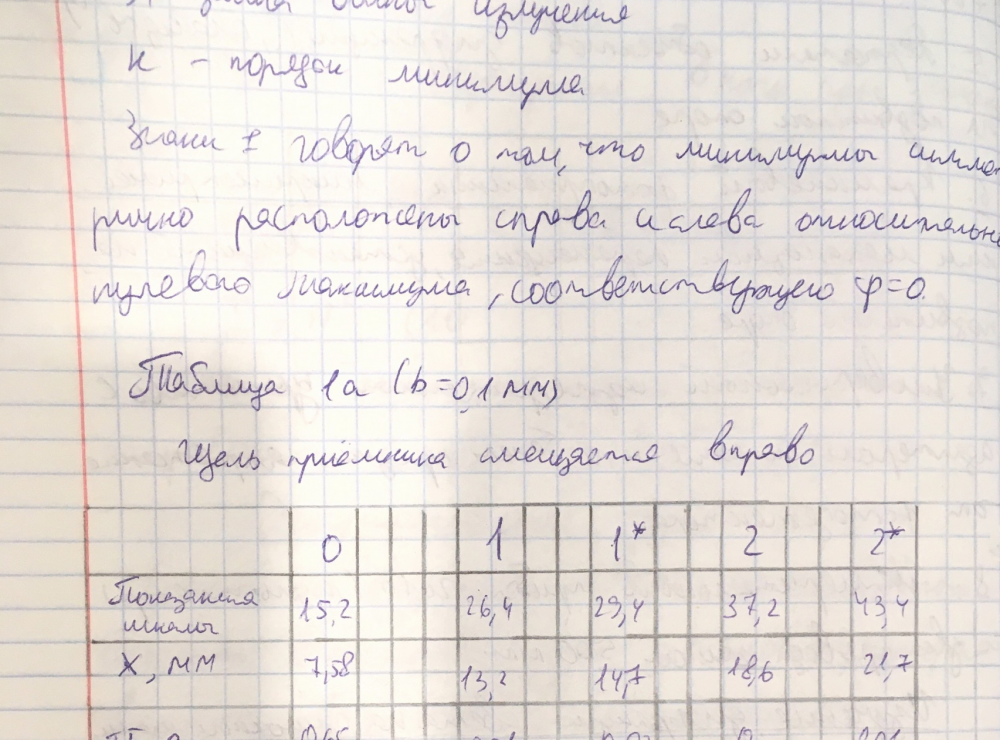 длины излучения
К – порядок минимума
Знаки ± говорят о том, что минимумы симмет
рично расположены справа и слева относительно
нулевого максимума, соответствующего φ=0.
Таблица 1а (b=0,1 мм)
Щель приёмника смещается вправо
0 1 1* 2 2*
Показания шкалы 15,2 26,4 29,4 37,2 43,4
X, мм 7,58 13,2 14,7 18,6 21,7